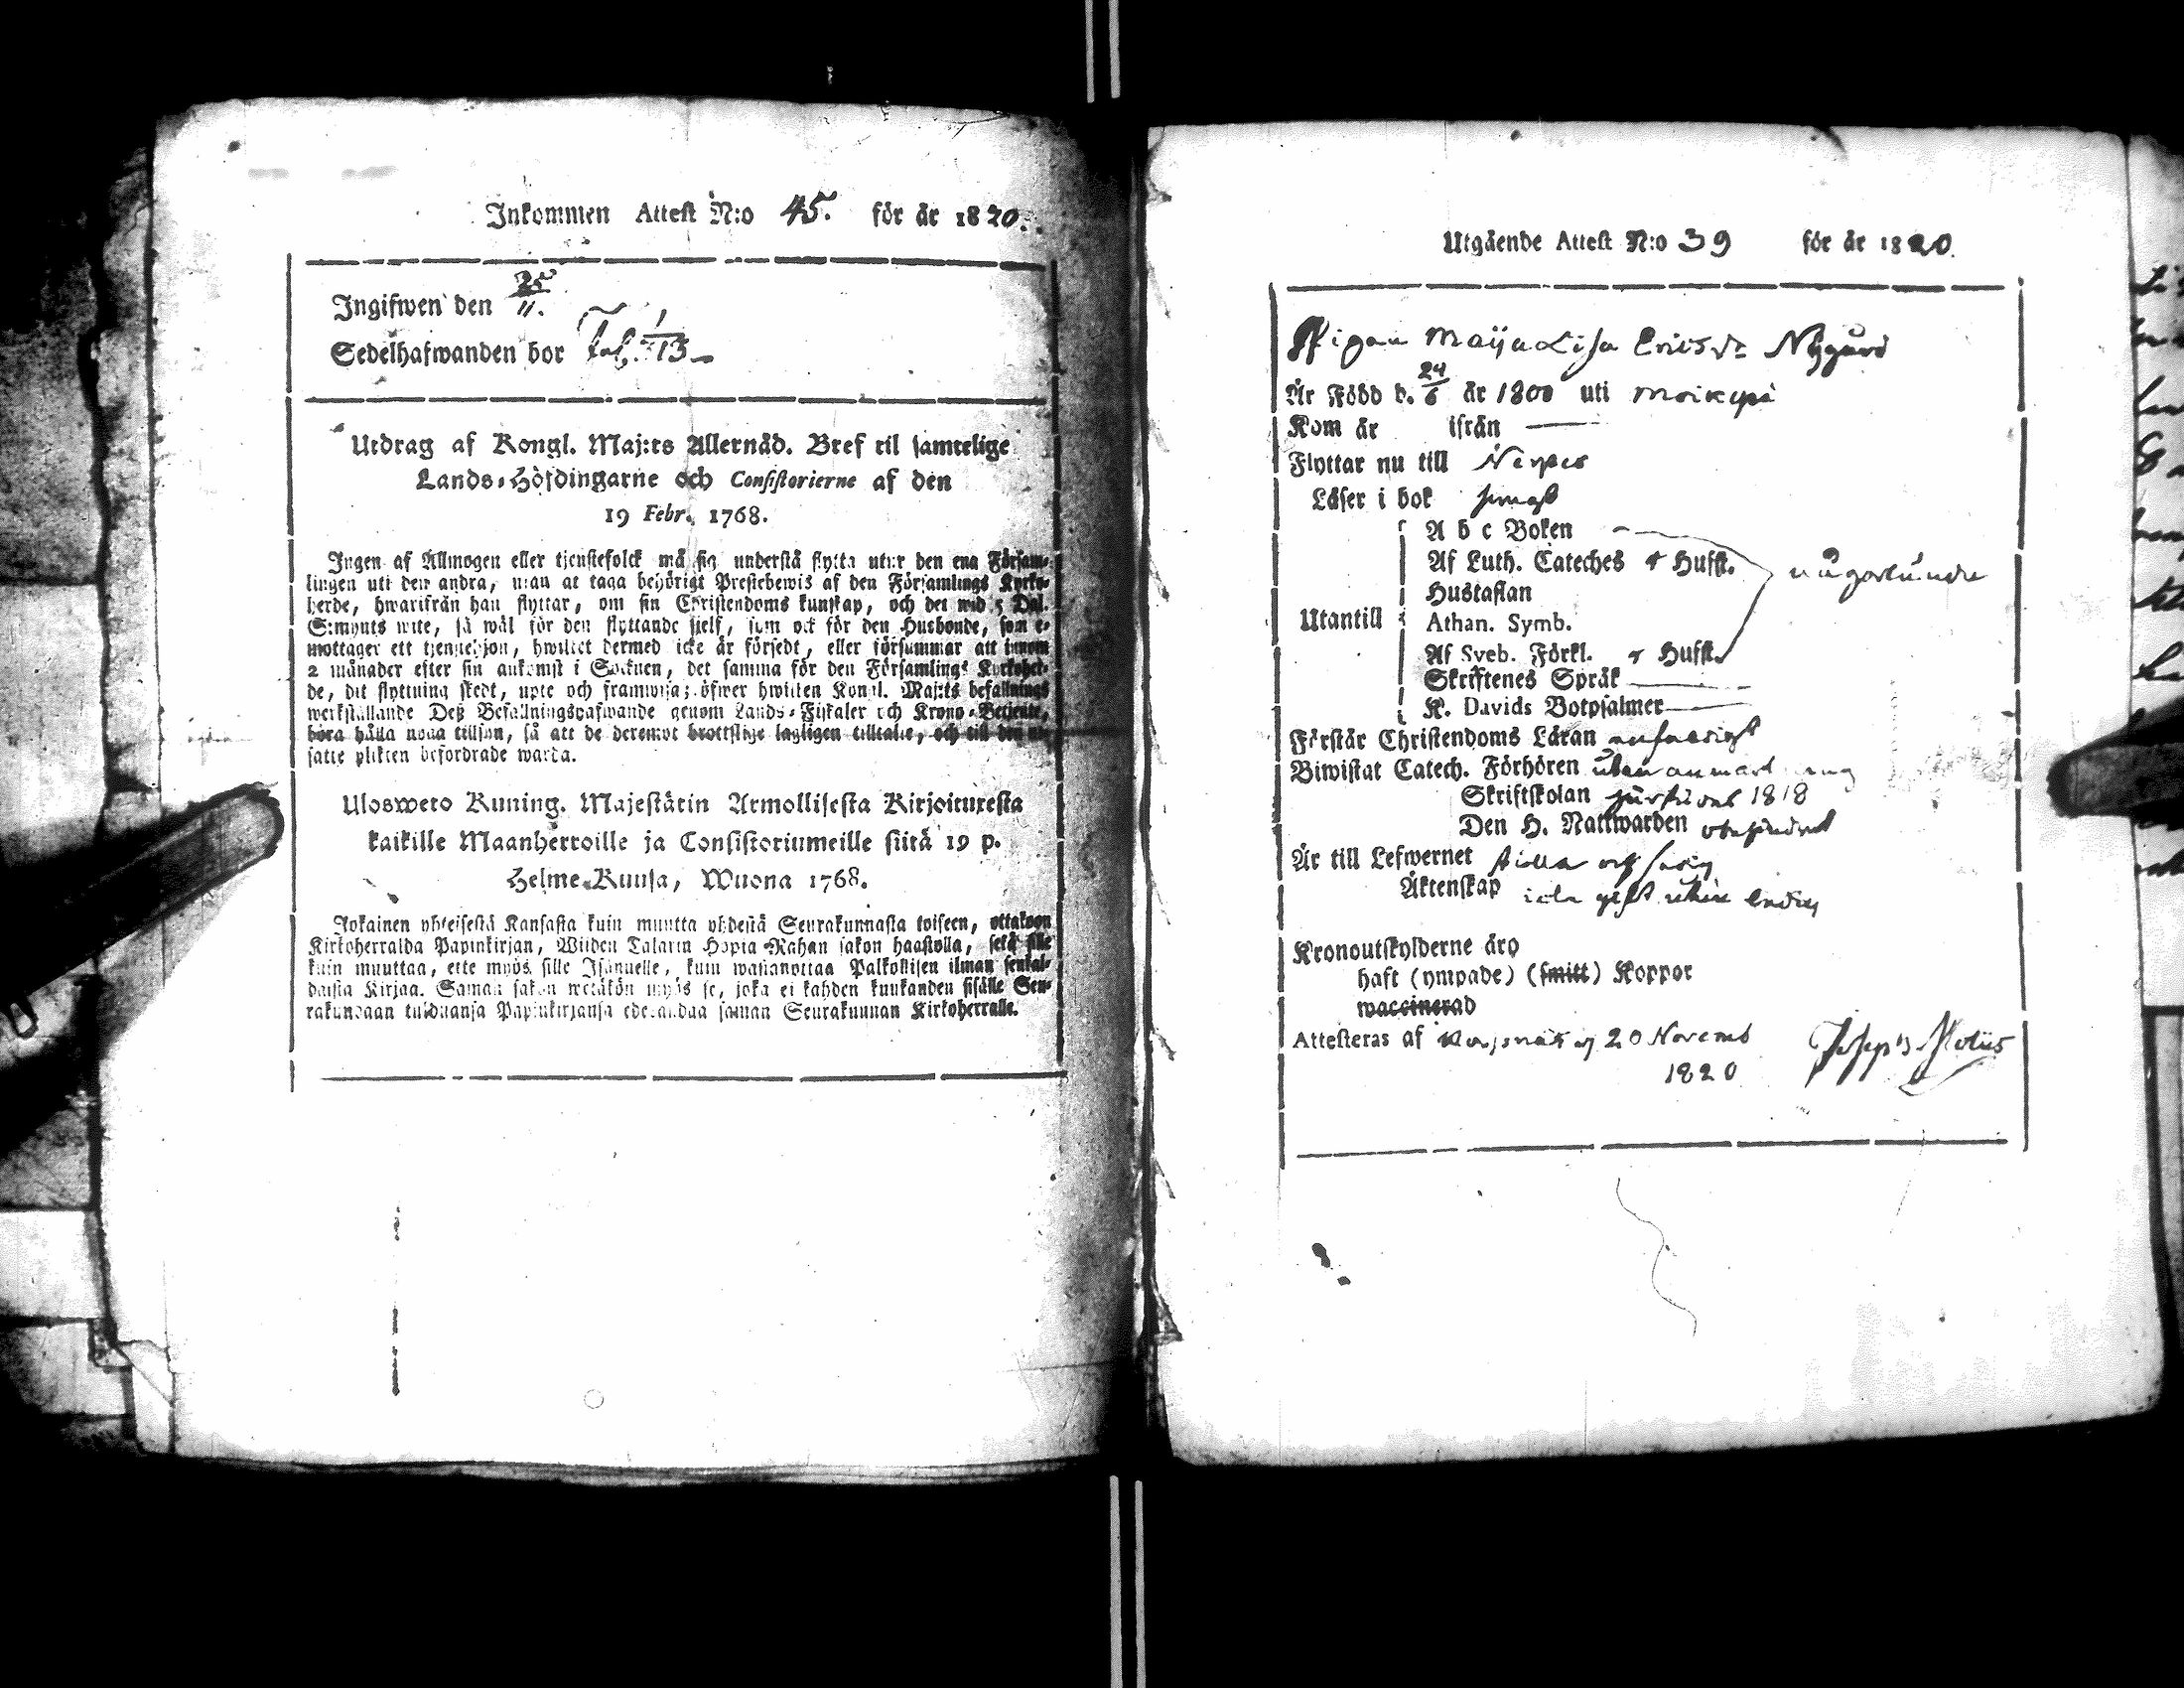 Inkommen Attest N:o 45. för år 1820.
Ingifwen den 25/11.
Sedelhafwanden bor Tal. 1/13
Utdrag af Kongl. Maj:ts Allernåd. Bref til samtelige
Lands-Höfdingarne och Consistorierne af den
19 Febr. 1768.
Ingen af Allmogen eller tjenstefolck må sig understå flytta utur den ena Försam-
lingen uti den andra, utan at taga behörigt Prestebewis af den Församlings Kyrko-
herde, hwarifrån han flyttar, om sin Christendoms kunskap, och det wid 5 Dal.
S:mynts wite, så wäl för den flyttande sielf, som ock för den Husbonde, som e-
mottager ett tjenstehjon, hwilket dermed icke är försedt, eller försummar att innom
2 månader efter sin ankomst i Socknen, det samma för den Församlings Kyrkoher-
de, dit flyttning skedt, upte och framwisa; öfwer hwilken Kongl. Maj:ts befallnings
werkställande Deß Befallningshafwande genom Lands-Fiskaler och Krono-Betjente,
böra hålla noga tillsyn, så att de deremot brottslige lagligen tilltalte, och till den ut-
satte plikten befordrade warda.
Ulosweto Kuning. Majestätin Armollisesta Kirjoituxesta
kaikille Maanherroille ja Consistoriumeille siitä 19 p.
Helme-Kuusa, Wuona 1768.
Jokainen yhteisestä Kansasta kuin muutta yhdestä Seurakunnasta toiseen, ottakoon
Kirkoherralda Papinkirjan, Wiiden Talarin Hopia-Rahan sakon haastolla, sekä sille
kuin muuttaa, ette myös sille Isännelle, kuin wastanottaa Palkollisen ilman senkal-
daista Kirjaa. Saman sakon wetäkön myös se, joka ei kahden kuukanden sisälle Seu-
rakundaan tulduansa Papinkirjansa edesandaa saman Seurakunnan Kirkoherralle.
Utgående Attest N:o 39 för år 1820.
Pigan Maija Lisa Ericsdr Nygård
Är Född d. 24/6 år 1800 uti Moikipä
Kom år ifrån —
Flyttar nu till Nerpes
Läser i bok
A b c Boken
Af Luth. Cateches & Hufst. någorlunda
Hustaflan
Utantill Athan. Symb.
Af Sveb. Förkl. & Hufst.
Skriftenes Språk
K. Davids Botpsalmer
Förstår Christendoms Läran enfaldigt
Biwistat Catech. Förhören utan anmärkning
Skriftskolan 1818
Den H. Nattwarden obehindrad
Är till Lefwernet stilla och sedig
Äktenskap icke gift eller ledig
Kronoutskylderne äro
haft (ympade) (smitt) Koppor
waccinerad
Attesteras af Korsnäs d 20 Novemb
1820